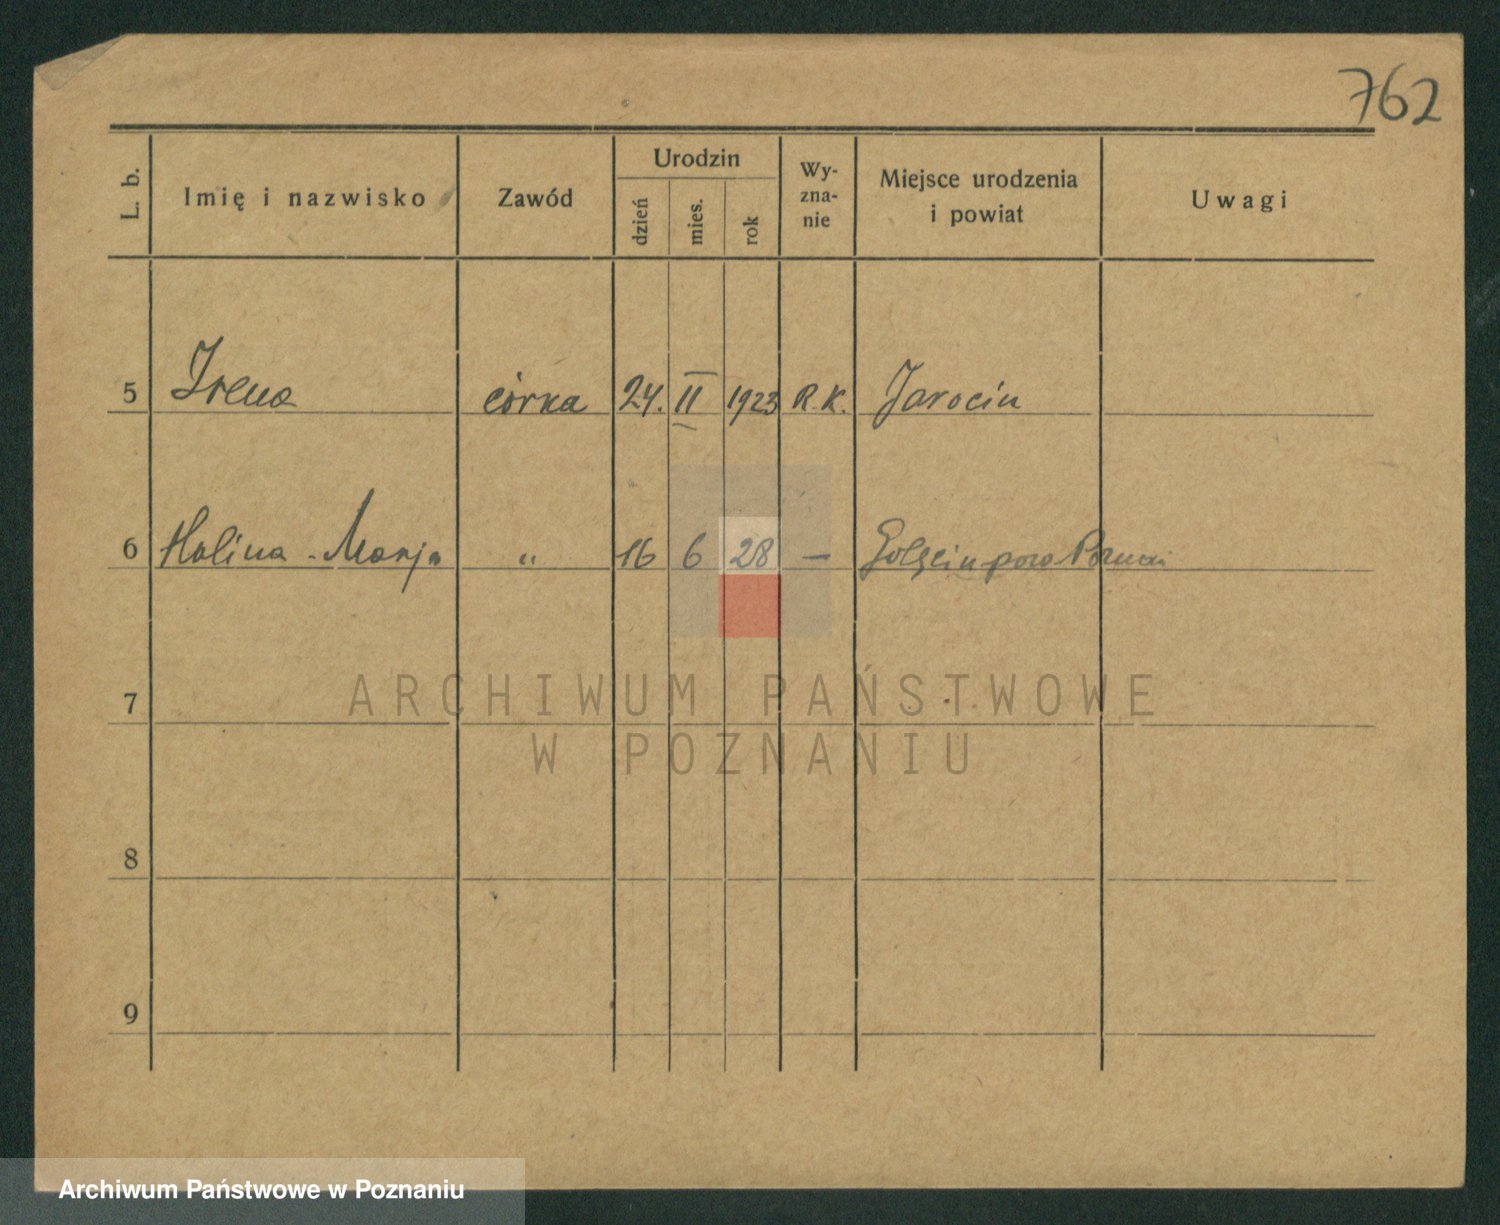 762
L. b.
Imię i nazwisko
Zawód
Urodzin
dzień
mies.
rok
Wy-
zna-
nie
Miejsce urodzenia
i powiat
Uwagi
5 Irena córka 24. II 1923 R.K. Jarocin
6 Halina - Marja " 16 6 28 — Golęcin pow Poznań
7
8
9
ARCHIWUM PAŃSTWOWE
W POZNANIU
Archiwum Państwowe w Poznaniu